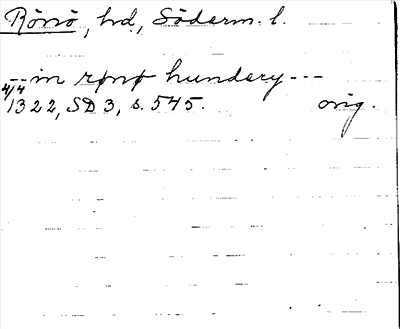 Rönö, hd, Söderm. l.
--in rønø hundery---
4/4 1322, SD 3, s. 545. orig.